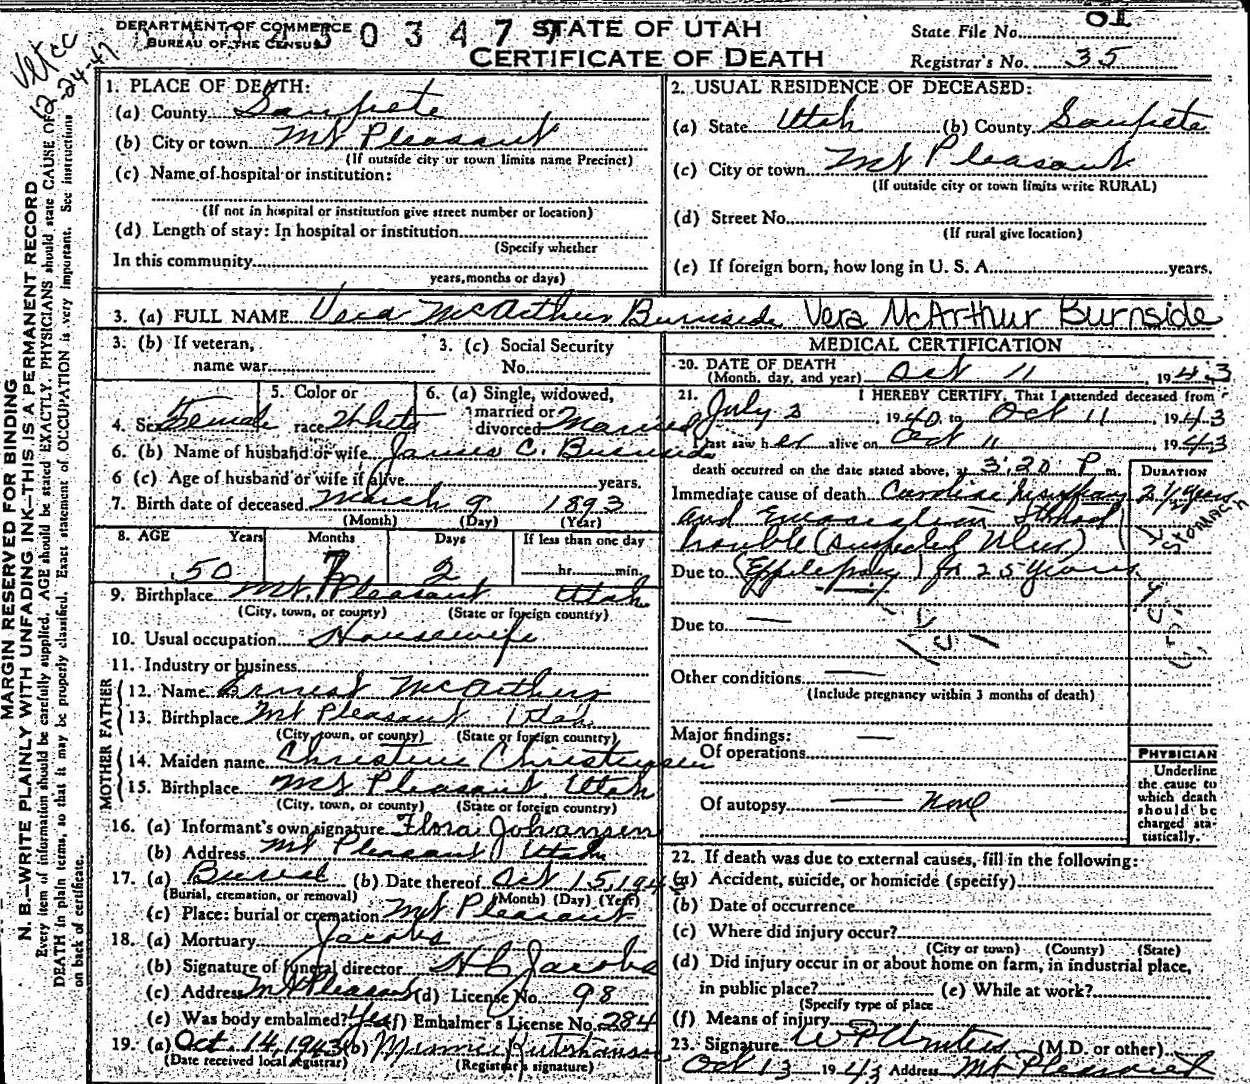 DEPARTMENT OF COMMERCE
BUREAU OF THE CENSUS
STATE OF UTAH
CERTIFICATE OF DEATH
State File No. 01
Registrar's No. 35
12-24-47
MARGIN RESERVED FOR BINDING
N. B.—WRITE PLAINLY WITH UNFADING INK—THIS IS A PERMANENT RECORD
Every item of information should be carefully supplied. AGE should be stated EXACTLY. PHYSICIANS should state CAUSE OF
DEATH in plain terms, so that it may be properly classified. Exact statement of OCCUPATION is very important. See instructions
on back of certificate.
1. PLACE OF DEATH:
(a) County Sanpete
(b) City or town Mt Pleasant
(If outside city or town limits name Precinct)
(c) Name of hospital or institution:
(If not in hospital or institution give street number or location)
(d) Length of stay: In hospital or institution
(Specify whether
In this community
years, months or days)
2. USUAL RESIDENCE OF DECEASED:
(a) State Utah (b) County Sanpete
(c) City or town Mt Pleasant
(If outside city or town limits write RURAL)
(d) Street No.
(If rural give location)
(e) If foreign born, how long in U. S. A. years.
3. (a) FULL NAME Vera McArthur Burnside Vera McArthur Burnside
3. (b) If veteran,
name war
3. (c) Social Security
No.
4. Sex Female
5. Color or
race White
6. (a) Single, widowed,
married or
divorced Married
6. (b) Name of husband or wife James C. Burnside
6 (c) Age of husband or wife if alive years.
7. Birth date of deceased March 9 1893
(Month) (Day) (Year)
8. AGE Years Months Days If less than one day
50 7 2 hr. min.
9. Birthplace Mt. Pleasant Utah
(City, town, or county) (State or foreign country)
10. Usual occupation Housewife
11. Industry or business
FATHER
12. Name Ernest McArthur
13. Birthplace Mt Pleasant Utah
(City, town, or county) (State or foreign country)
MOTHER
14. Maiden name Christine Christensen
15. Birthplace Mt Pleasant Utah
(City, town, or county) (State or foreign country)
16. (a) Informant's own signature Flora Johansen
(b) Address Mt Pleasant Utah
17. (a) Burial (b) Date thereof Oct 15, 1943
(Burial, cremation, or removal) (Month) (Day) (Year)
(c) Place: burial or cremation Mt Pleasant
18. (a) Mortuary Jacobs
(b) Signature of funeral director H C Jacobs
(c) Address Mt Pleasant (d) License No. 98
(e) Was body embalmed? Yes (f) Embalmer's License No. 284
19. (a) Oct. 14, 1943 (b) Minnie
(Date received local registrar) (Registrar's signature)
MEDICAL CERTIFICATION
20. DATE OF DEATH
(Month, day, and year) Oct 11, 1943
21. I HEREBY CERTIFY, That I attended deceased from
July 3, 1940, to Oct 11, 1943
I last saw her alive on Oct 11 1943
death occurred on the date stated above, at 3:20 P m.
DURATION
Immediate cause of death 2 1/2 years
and Emaciation Stomach
trouble (suspected Ulcer)
STOMACH
Due to (Epilepsy) for 25 years
Due to —
Other conditions —
(Include pregnancy within 3 months of death)
Major findings: —
Of operations
Of autopsy — None
PHYSICIAN
Underline
the cause to
which death
should be
charged sta-
tistically.
22. If death was due to external causes, fill in the following:
(a) Accident, suicide, or homicide (specify)
(b) Date of occurrence
(c) Where did injury occur?
(City or town) (County) (State)
(d) Did injury occur in or about home on farm, in industrial place,
in public place? (e) While at work?
(Specify type of place
(f) Means of injury
23. Signature (M.D. or other)
Oct 13 1943 Address Mt Pleasant